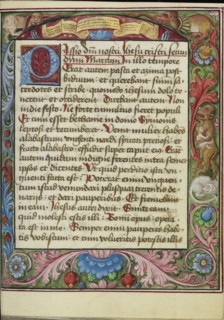 Passio dñi nostri Jhesu cristi secun
dum Marcum In illo tempore
Erat autem pasca et azima post
biduum: et querebant summi sa
cerdotes et scribe quomodo ihesum dolo te
nerent et occiderent Dicebant autem Non
in die festo ne forte tumultus fieret populi
Et cum esset bethanie in domo Symonis
leprosi et recumberet Venit mulier habens
alabastrum unguenti nardi spicati preciosi et
fracto alabastro effudit super caput eius Erãt
autem quidam indigne ferentes intra semet
ipsos et dicentes Ut quid perditio ista un
guenti facta est Poterat enim unguen
tum istud venundari plusquam trecentis de
narijs et dari pauperibus Et fremebant
in eam Jhesus autem dixit Sinite eam
quid molesti estis illi Bonum opus opera
ta est in me Semper enim pauperes habe
tis vobiscum et cum volueritis potestis illis